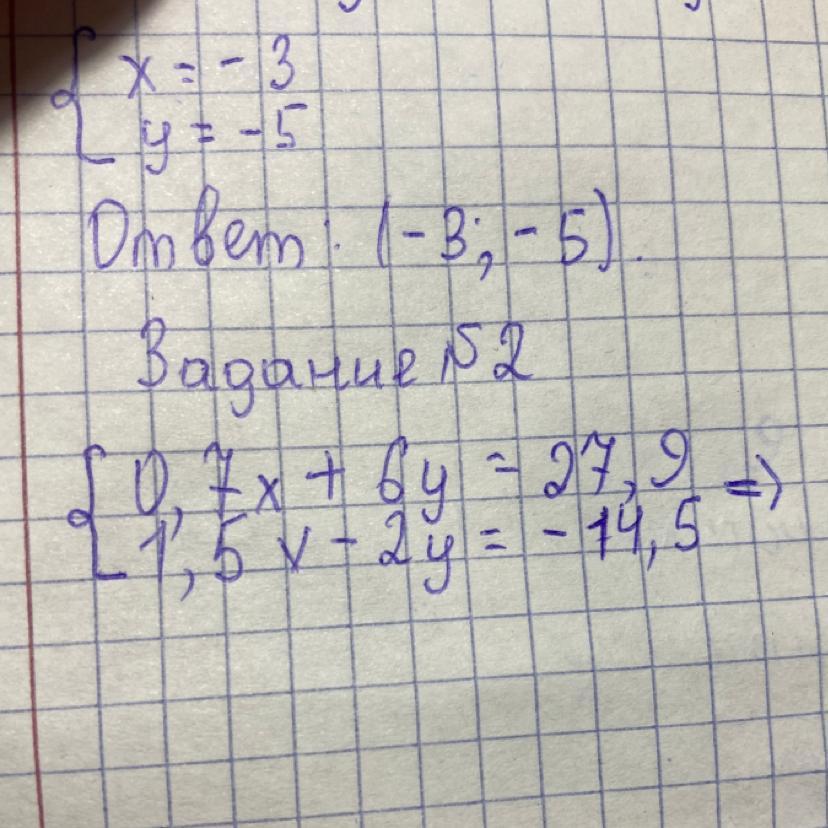 { x = - 3
y = - 5
Ответ: (- 3; - 5).
Задание №2
{ 0,7x + 6y = 27,9 =>
1,5x - 2y = - 14,5